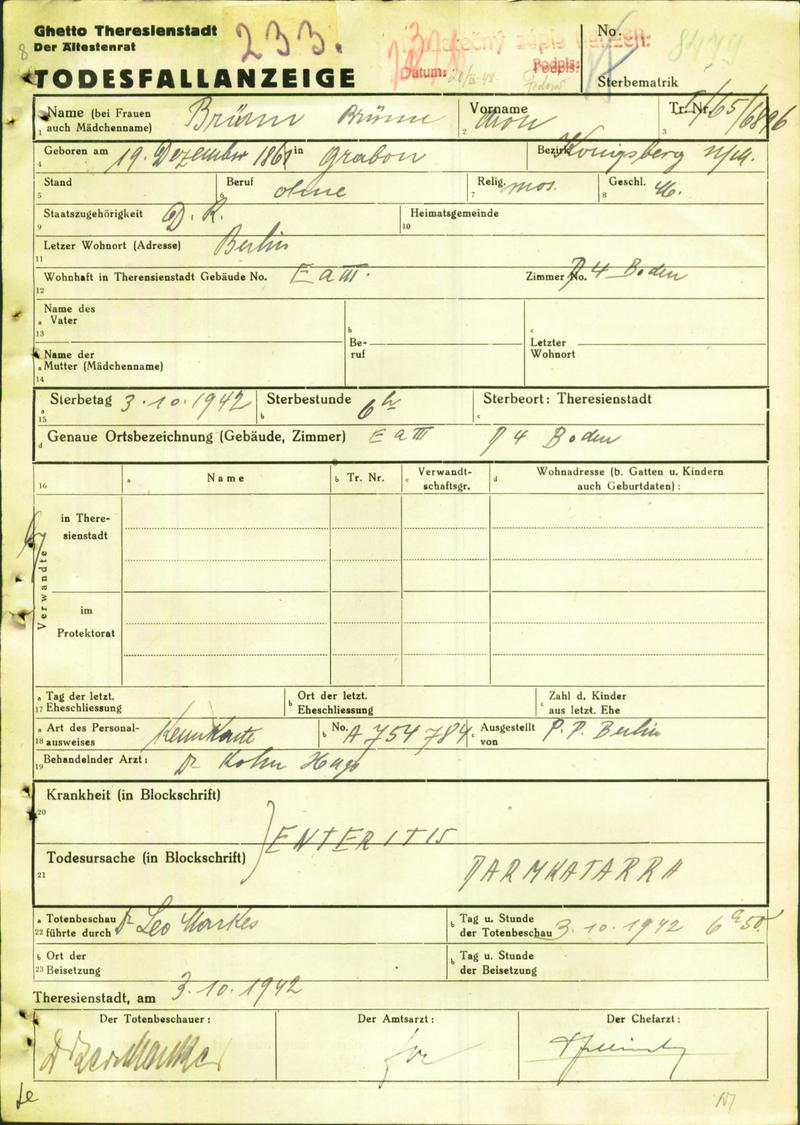 Ghetto Theresienstadt
Der Ältestenrat
233.
Datum:
Podpis:
No.
8479
TODESFALLANZEIGE
Sterbematrik
Name (bei Frauen auch Mädchenname) Brünn Brünn
Vorname Aron
Tr. Nr. I/65/6896
1 2 3
Geboren am 19. Dezember 1861 in Grabon Bezirk Königsberg
4
Stand Beruf ohne Relig. mos. Geschl. M.
5 7 8
Staatszugehörigkeit D. R. Heimatsgemeinde
9 10
Letzer Wohnort (Adresse) Berlin
11
Wohnhaft in Therensienstadt Gebäude No. E a III. Zimmer No. 4 Boden
12
Name des a Vater
13
b Beruf
c Letzter Wohnort
Name der a Mutter (Mädchenname)
14
a 15 Sterbetag 3.10.1942 b Sterbestunde 6 h c Sterbeort: Theresienstadt
d Genaue Ortsbezeichnung (Gebäude, Zimmer) E a III 4 Boden
16 a Name b Tr. Nr. c Verwandtschaftsgr. d Wohnadresse (b. Gatten u. Kindern auch Geburtdaten) :
Verwandte
in Theresienstadt
im Protektorat
a 17 Tag der letzt. Eheschliessung b Ort der letzt. Eheschliessung c Zahl d. Kinder aus letzt. Ehe
a 18 Art des Personalausweises Kennkarte b No. A 754 784 c Ausgestellt von P. P. Berlin
19 Behandelnder Arzt: Dr Kohn Hugo
Krankheit (in Blockschrift)
20
ENTERITIS
Todesursache (in Blockschrift) DARMKATARRH
21
a 22 Totenbeschau führte durch Dr Leo Markes b Tag u. Stunde der Totenbeschau 3.10.1942 6 h 50
b 23 Ort der Beisetzung b Tag u. Stunde der Beisetzung
Theresienstadt, am 3.10.1942
Der Totenbeschauer: Der Amtsarzt: Der Chefarzt: